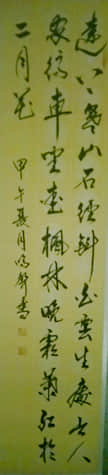 遠上寒山石徑斜白雲生處有人
家停車坐愛楓林晚霜葉紅於
二月花
甲午夏月書